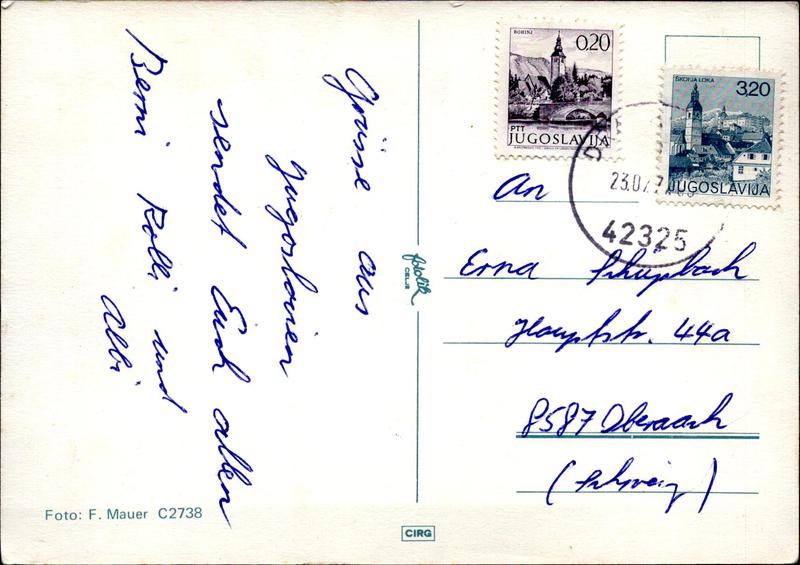 Grüsse aus
Jugoslavien
sendet Euch allen
Berni Rolli und
Abbi
Foto: F. Mauer C2738
fotolik
CELJE
CIRG
BOHINJ
0,20
PTT
JUGOSLAVIJA
ŠKOFJA LOKA
3,20
JUGOSLAVIJA
42325
An
Erna Schüpbach
Hauptstr. 44a
8587 Oberaach
(Schweiz)